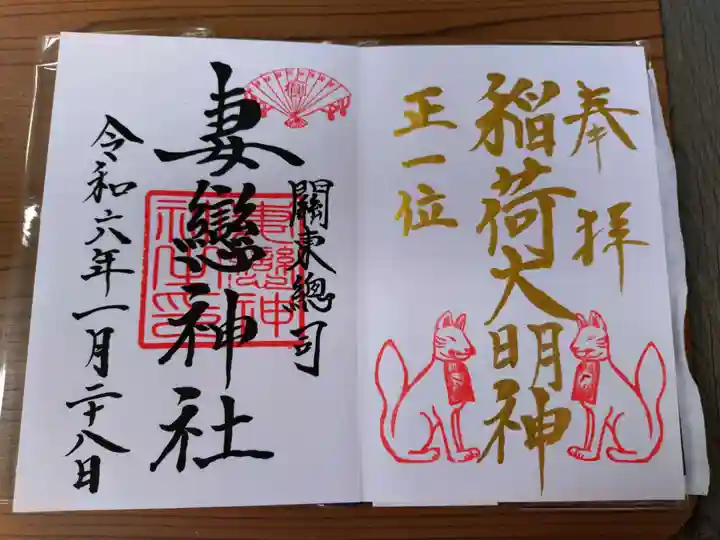 奉拜
稲荷大明神
正一位
關東總司
妻戀神社
令和六年一月二十八日